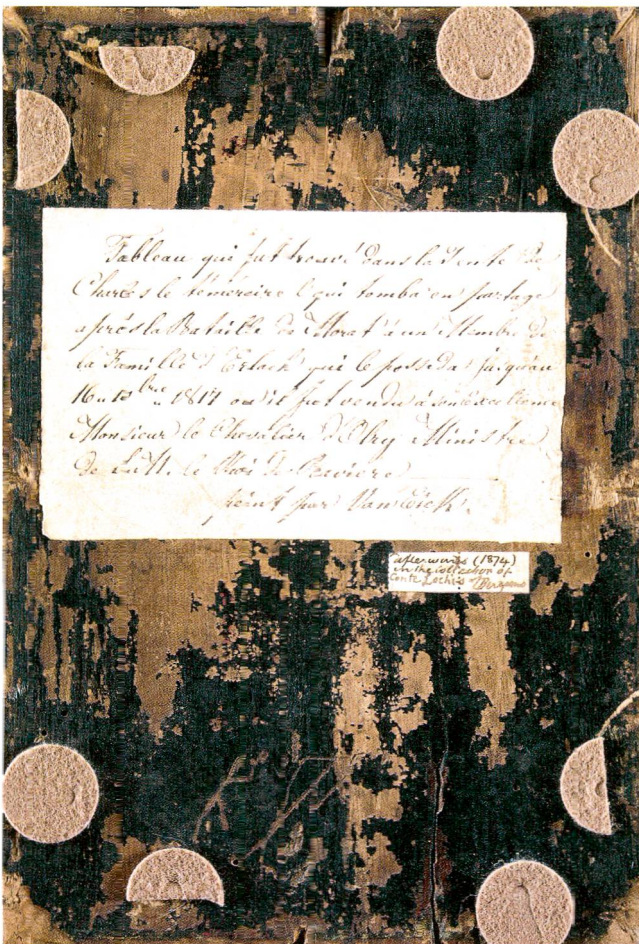 Tableau qui fut trouvé dans la Tente de
Charles le témeraire & qui tomba en partage
après la Bataille de Morat à un Membre de
la Famille d'Erlach qui le posseda jusqu'au
16 bre 1817 où il fut vendu à son Excellence
Monsieur le Chevalier d'Olry Ministre
de S. M. le Roi de Baviere
peint par Van Eick.
afterwards (1874)
in the collection of
Conte Lochis of Bergamo